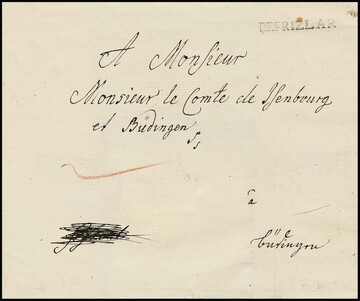 DEFRIZLAR
A Monsieur
Monsieur le Comte de Isenbourg
et Büdingen
à
Büdingen